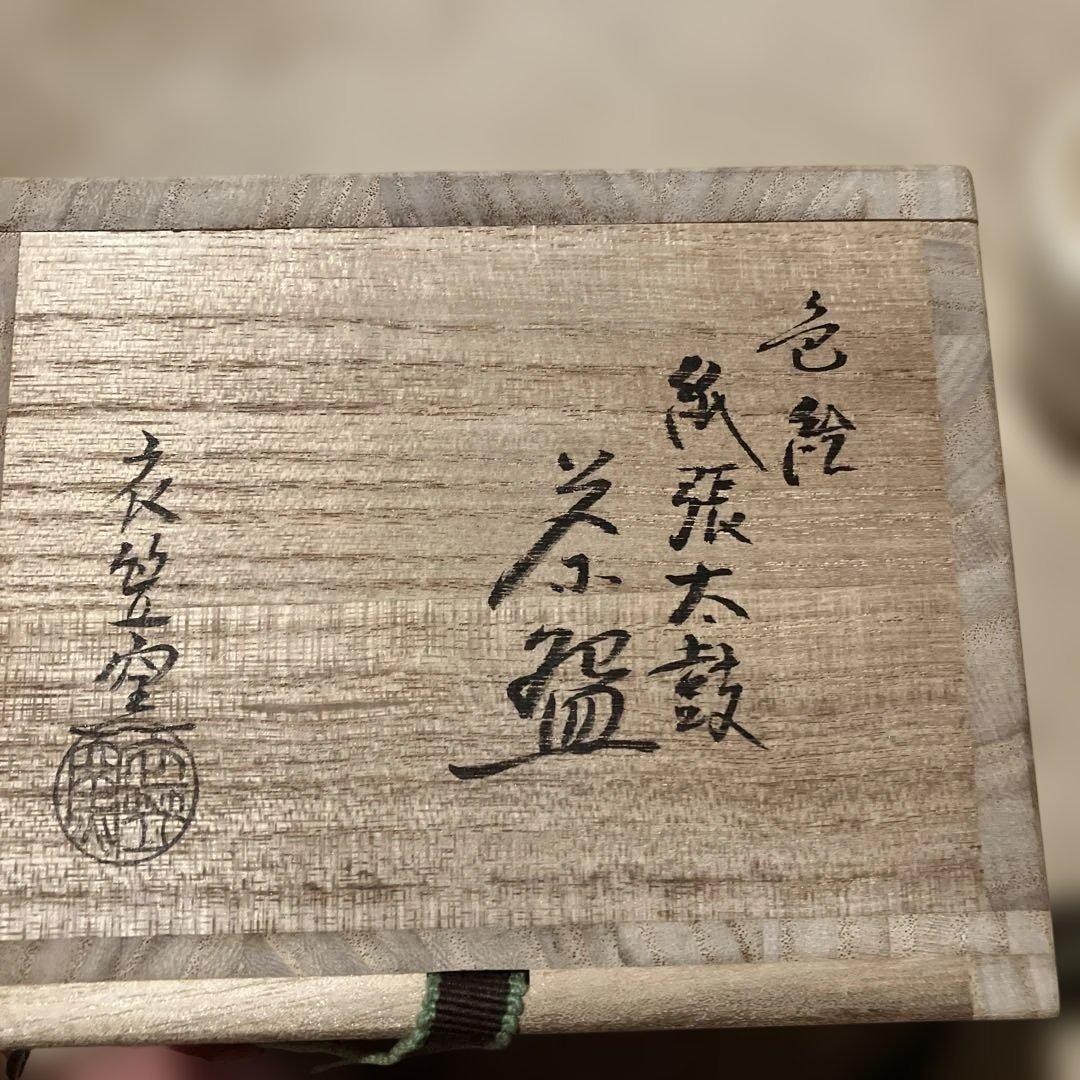 色絵
紙張太鼓
茶盌
衣笠窯